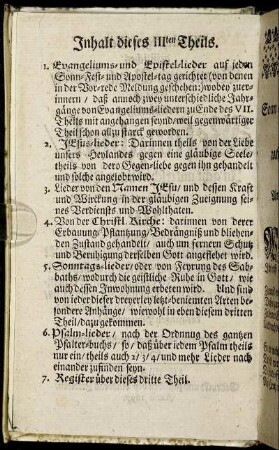 Inhalt dieses IIIten Theils.
1. Evangeliums- und Epistel-lieder auf jeden
Sonn- Fest- und Apostel-tag gerichtet (von denen
in der Vor-rede Meldung geschehen:) wobey zuer-
innern / daß annoch zwey unterschiedliche Jahr-
gänge von Evangeliumsliedern zu Ende des VII.
Theils mit angehangen seynd / weil gegenwärtiger
Theil schon allzu starck geworden.
2. JEsus-lieder: Darinnen theils von der Liebe
unsers Heylandes gegen eine gläubige Seele /
theils von dero Gegen-liebe gegen ihn gehandelt
und solche angelobt wird.
3. Lieder von den Namen JEsu / und dessen Kraft
und Würckung in der gläubigen Zueignung sei-
nes Verdiensts und Wohlthaten.
4. Von der Christl. Kirche: darinnen von derer
Erbauung / Pflantzung / Bedrängniß und blühen-
den Zustand gehandelt / auch um fernern Schutz
und Beruhigung derselben Gott angeflehet wird.
5. Sonntags-lieder / oder von Feyrung des Sab-
baths / wodurch die geistliche Ruhe in Gott / wie
auch dessen Inwohnung erbeten wird. Und sind
von ieder dieser dreyerley letzt-beniemten Arten be-
sondere Anhänge / wiewohl in eben diesem dritten
Theil / dazu gekommen.
6. Psalm-lieder / nach der Ordnung des gantzen
Psalter-buchs / so / daß über iedem Psalm theils
nur ein / theils auch 2 / 3 / 4 / und mehr Lieder nach
einander zufinden seyn.
7. Register über dieses dritte Theil.